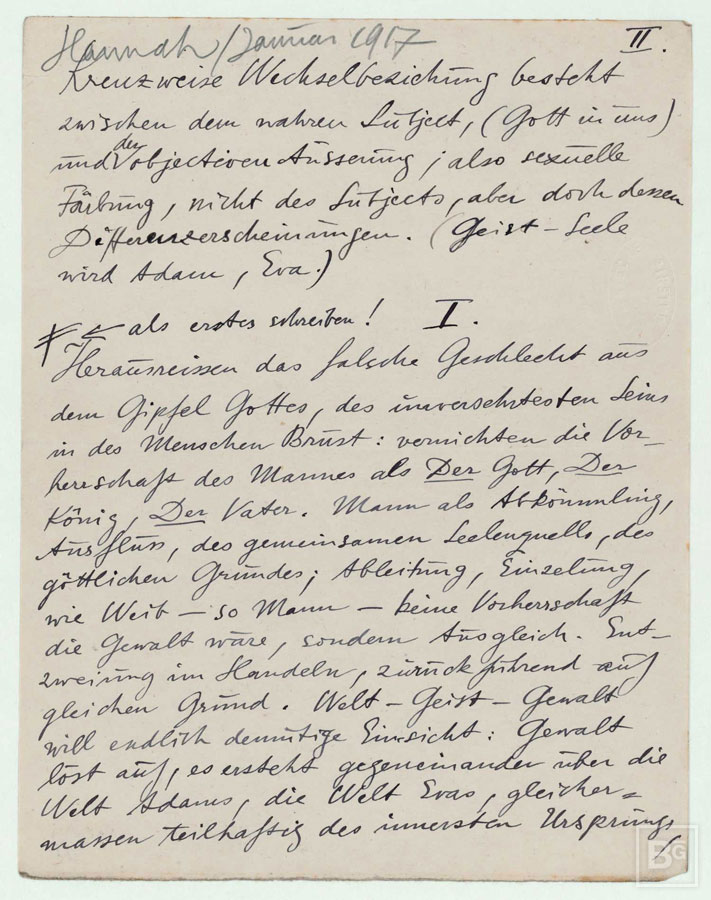 Hannah / Januar 1917
II.
Kreuzweise Wechselbeziehung besteht
zwischen dem wahren Subject, (Gott in uns)
und der objectiven Äusserung; also sexuelle
Färbung, nicht des Subjects, aber doch dessen
Differenzerscheinungen. (Geist – Seele
wird Adam, Eva.)
als erstes schreiben! I.
Herausreissen das falsche Geschlecht aus
dem Gipfel Gottes, des unversehrtesten Seins
in des Menschen Brust: vernichten die Vor-
herrschaft des Mannes als Der Gott, Der
König, Der Vater. Mann als Abkömmling,
Ausfluss, des gemeinsamen Seelenquells, des
göttlichen Grundes; Ableitung, Einzelung,
wie Weib – so Mann – keine Vorherrschaft
die Gewalt wäre, sondern Ausgleich. Ent-
zweiung im Handeln, zurückführend auf
gleichen Grund. Welt – Geist – Gewalt
will endlich demütige Einsicht: Gewalt
löst auf, es ersteht gegeneinander über die
Welt Adams, die Welt Evas, gleicher=
massen teilhaftig des innersten Ursprungs
BG